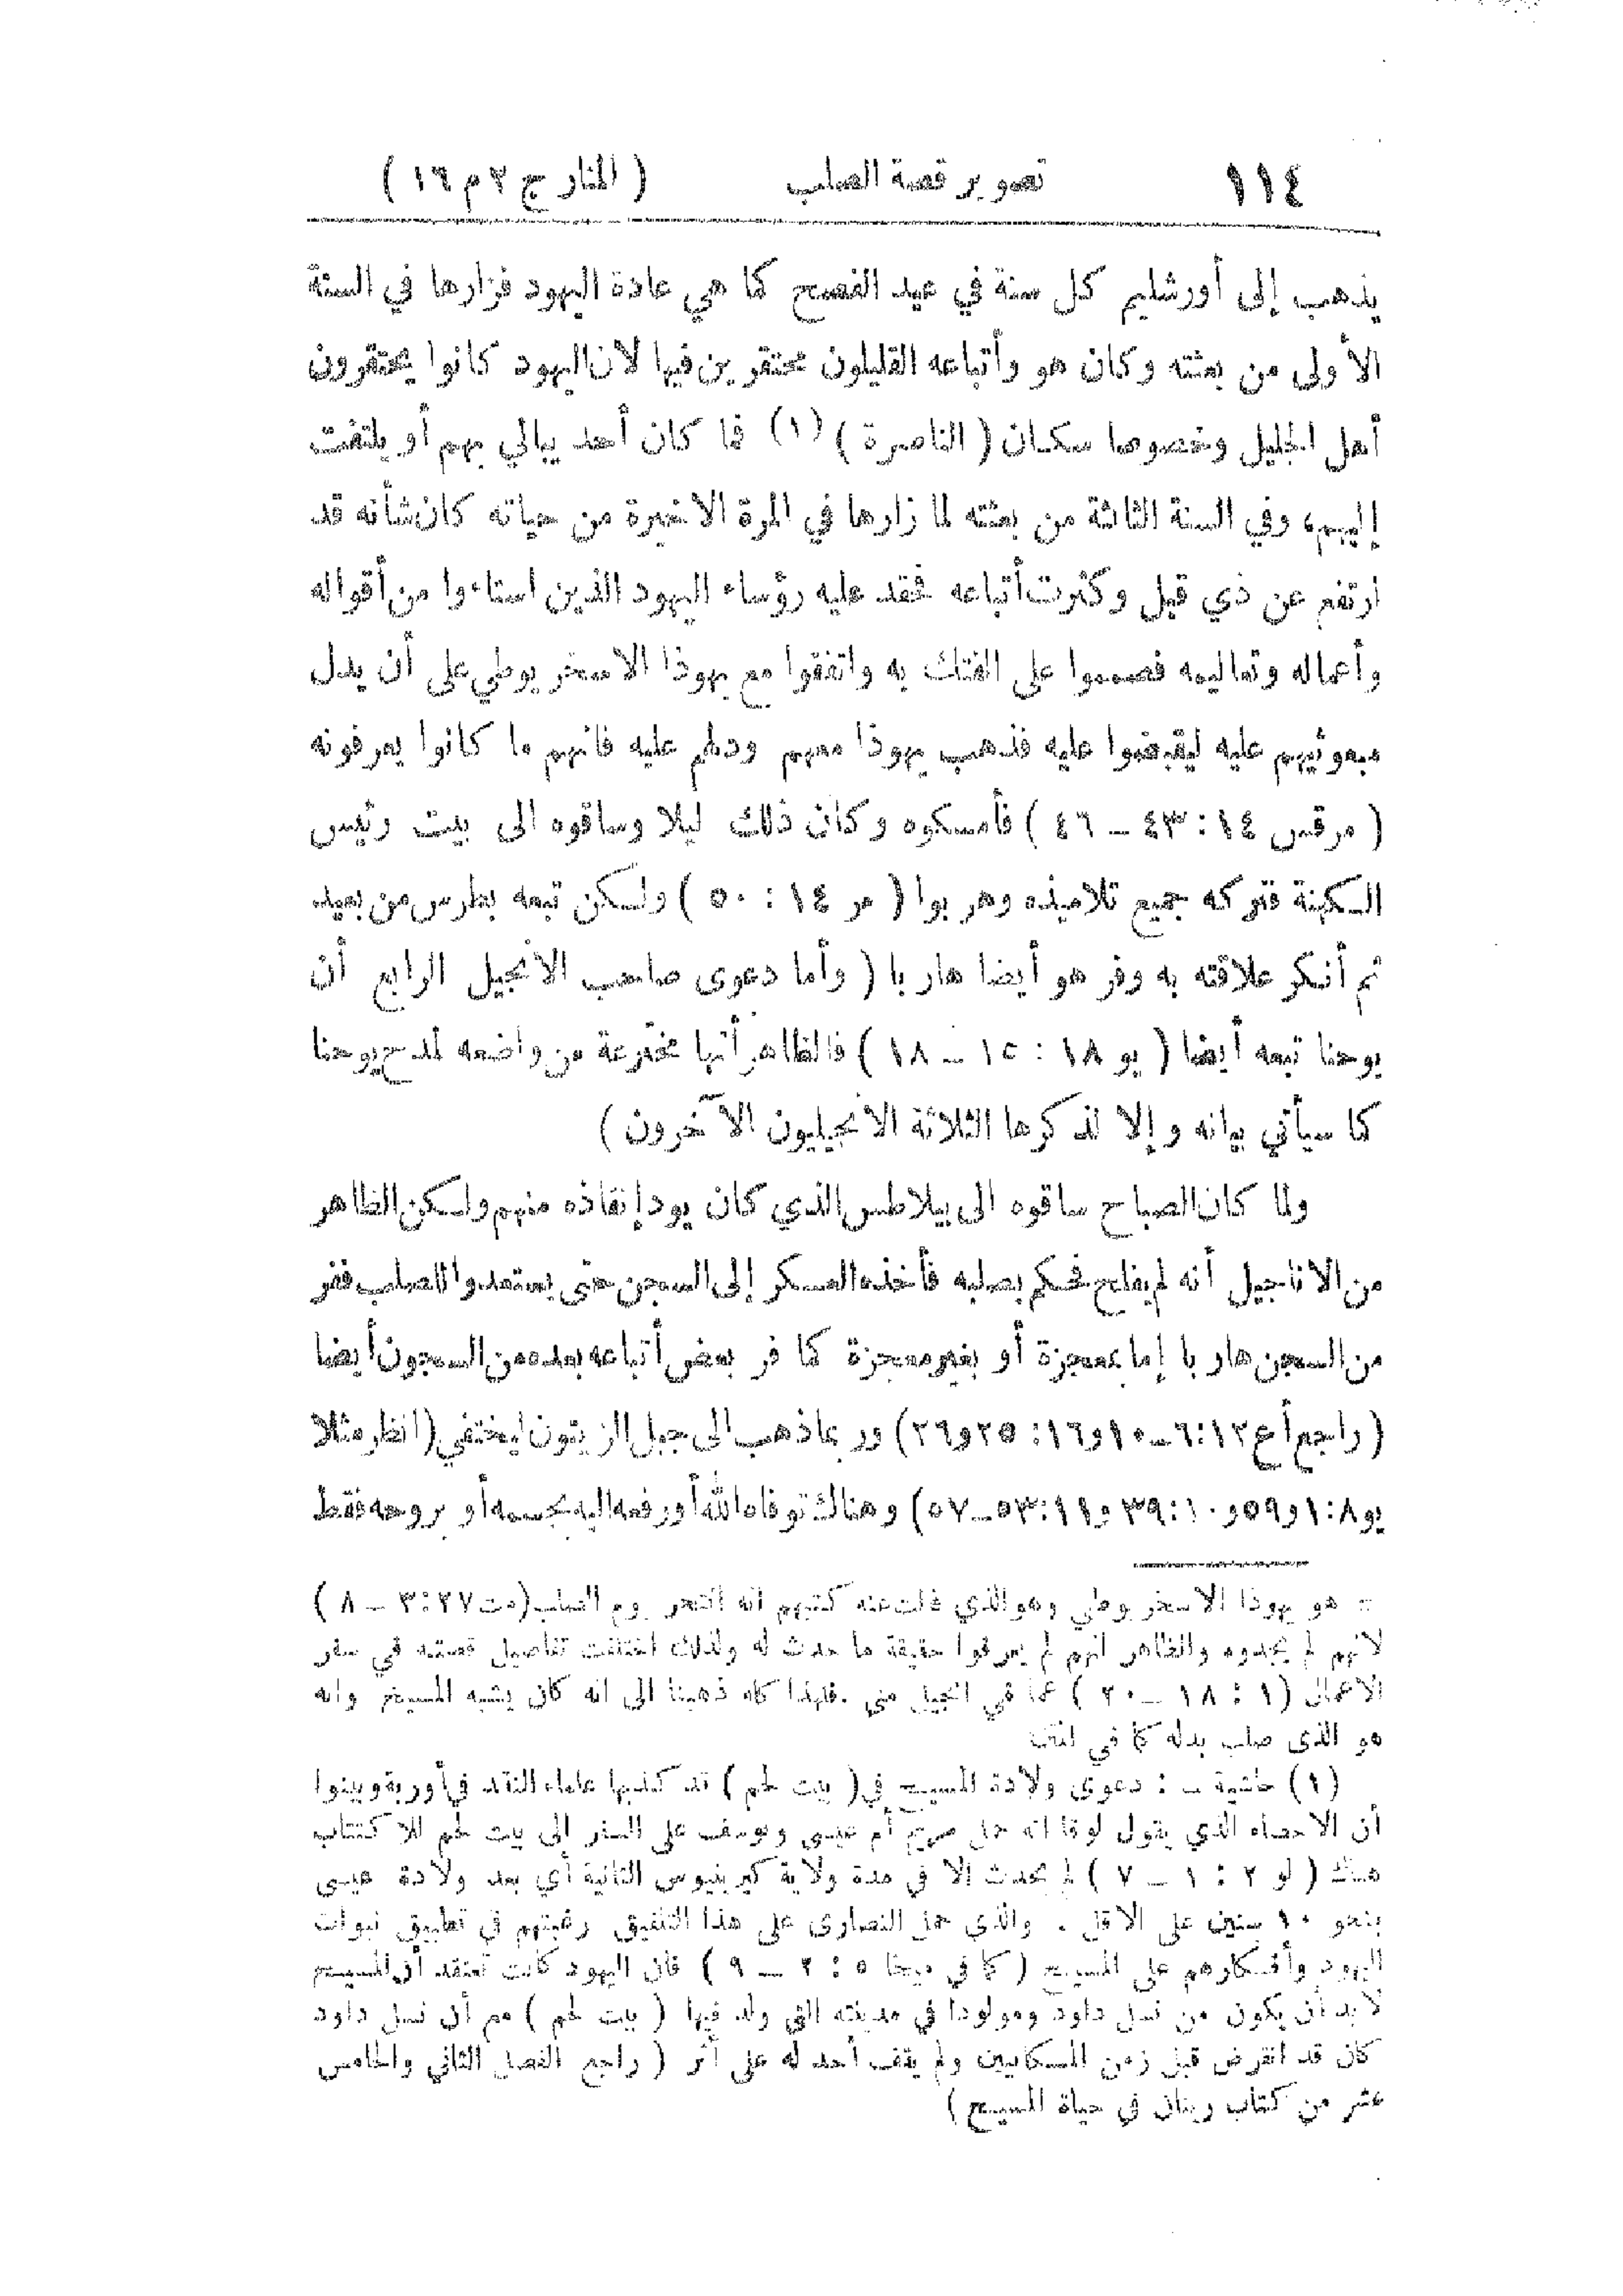 ١١٤ تصوير قصة الصلب ( المنار ج ٢ م ١٦ )
يذهب إلى أورشليم كل سنة في عيد الفصح كما هي عادة اليهود فزارها في السنة
الأولى من بعثته وكان هو وأتباعه القليلون محتقرين فيها لان اليهود كانوا يحتقرون
أهل الجليل وخصوصا سكان ( الناصرة ) (١) فما كان أحد يبالي بهم أو يلتفت
إليهم، وفي السنة الثالثة من بعثته لما زارها في المرة الاخيرة من حياته كان شأنه قد
ارتفع عن ذي قبل وكثرت أتباعه فحقد عليه رؤساء اليهود الذين استاءوا من أقواله
وأعماله وتعاليمه فصمموا على الفتك به واتفقوا مع يهوذا الاسخريوطي على أن يدل
مبعوثيهم عليه ليقبضوا عليه فذهب يهوذا معهم ودلهم عليه فانهم ما كانوا يعرفونه
( مرقس ١٤ : ٤٣ – ٤٦ ) فأمسكوه وكان ذلك ليلا وساقوه الى بيت رئيس
الكهنة فتركه جميع تلاميذه وهربوا ( مر ١٤ : ٥٠ ) ولكن تبعه بطرس من بعيد
ثم أنكر علاقته به وفر هو أيضا هاربا ( وأما دعوى صاحب الانجيل الرابع أن
يوحنا تبعه أيضا ( يو ١٨ : ١٥ – ١٨ ) فالظاهر أنها مخترعة من واضعه لمدح يوحنا
كما سيأتي بيانه وإلا لذكرها الثلاثة الانجيليون الآخرون )
ولما كان الصباح ساقوه الى بيلاطس الذي كان يود إنقاذه منهم ولكن الظاهر
من الاناجيل أنه لم يفلح فحكم بصلبه فأخذه العسكر إلى السجن حتى يستعدوا للصلب ففر
من السجن هاربا إما بمعجزة أو بغير معجزة كما فر بعض أتباعه بعده من السجون أيضا
( راجع أع ١٢:٦–١٠ و١٦: ٢٥ و٢٦) وربما ذهب الى جبل الزيتون ليختفي (انظر مثلا
يو ٨:١ و٥٩ و١٠:٣٩ و١١:٥٣–٥٧) وهناك توفاه الله أو رفعه اليه بجسمه أو بروحه فقط
= هو يهوذا الاسخريوطي وهو الذي قالت عنه كتبهم انه انتحر يوم الصلب (مت ٢٧:٣ – ٨ )
لانهم لم يجدوه والظاهر انهم لم يعرفوا حقيقة ما حدث له ولذلك اختلفت تفاصيل قصته في سفر
الاعمال (١ : ١٨ – ٢٠ ) عما في انجيل متى . فلهذا كله ذهبنا الى انه كان يشبه المسيح وانه
هو الذى صلب بدله كما في
(١) حاشية ــ : دعوى ولادة المسيح في ( بيت لحم ) قد كذبها علماء النقد في أوربة وبينوا
أن الاحصاء الذي يقول لوقا انه حمل مريم أم عيسى ويوسف على السفر إلى بيت لحم للاكتتاب
هناك ( لو ٢ : ١ – ٧ ) لم يحدث الا في مدة ولاية كيرينيوس الثانية أي بعد ولادة عيسى
بنحو ١٠ سنين على الاقل . والذي حمل النصارى على هذا التلفيق رغبتهم في تطبيق نبوات
اليهود وأفكارهم على المسيح ( كما في ميخا ٥ : ٢ – ٩ ) فان اليهود كانت تعتقد أن المسيح
لابد أن يكون من نسل داود ومولودا في مدينته التي ولد فيها ( بيت لحم ) مع أن نسل داود
كان قد انقرض قبل زمن المكابيين ولم يقف أحد له على أثر ( راجع الفصل الثاني والخامس
عشر من كتاب رينان في حياة المسيح )